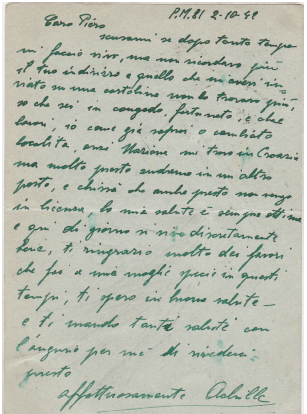 P.M. 81 2-10-42
Caro Piero
scusami se dopo tanto tempo
mi faccio vivo, ma non ricordavo più
il tuo indirizzo e quello che mi avevi in
viato su una cartolina non lo trovavo più,
so che sei in congedo, fortunato, e che
lavori, io come già saprai o cambiato
località, anzi Nazione mi trovo in Croazia
ma molto presto andremo in un altro
posto, e chissà che anche presto non venga
in licenza, la mia salute è sempre ottima
e qui di giorno si vive discretamente
bene, ti ringrazio molto dei favori
che fai a mia moglie specie in questi
tempi, ti spero in buona salute -
e ti mando tanti saluti con
l'augurio per me di rivederci
presto
affettuosamente Achille